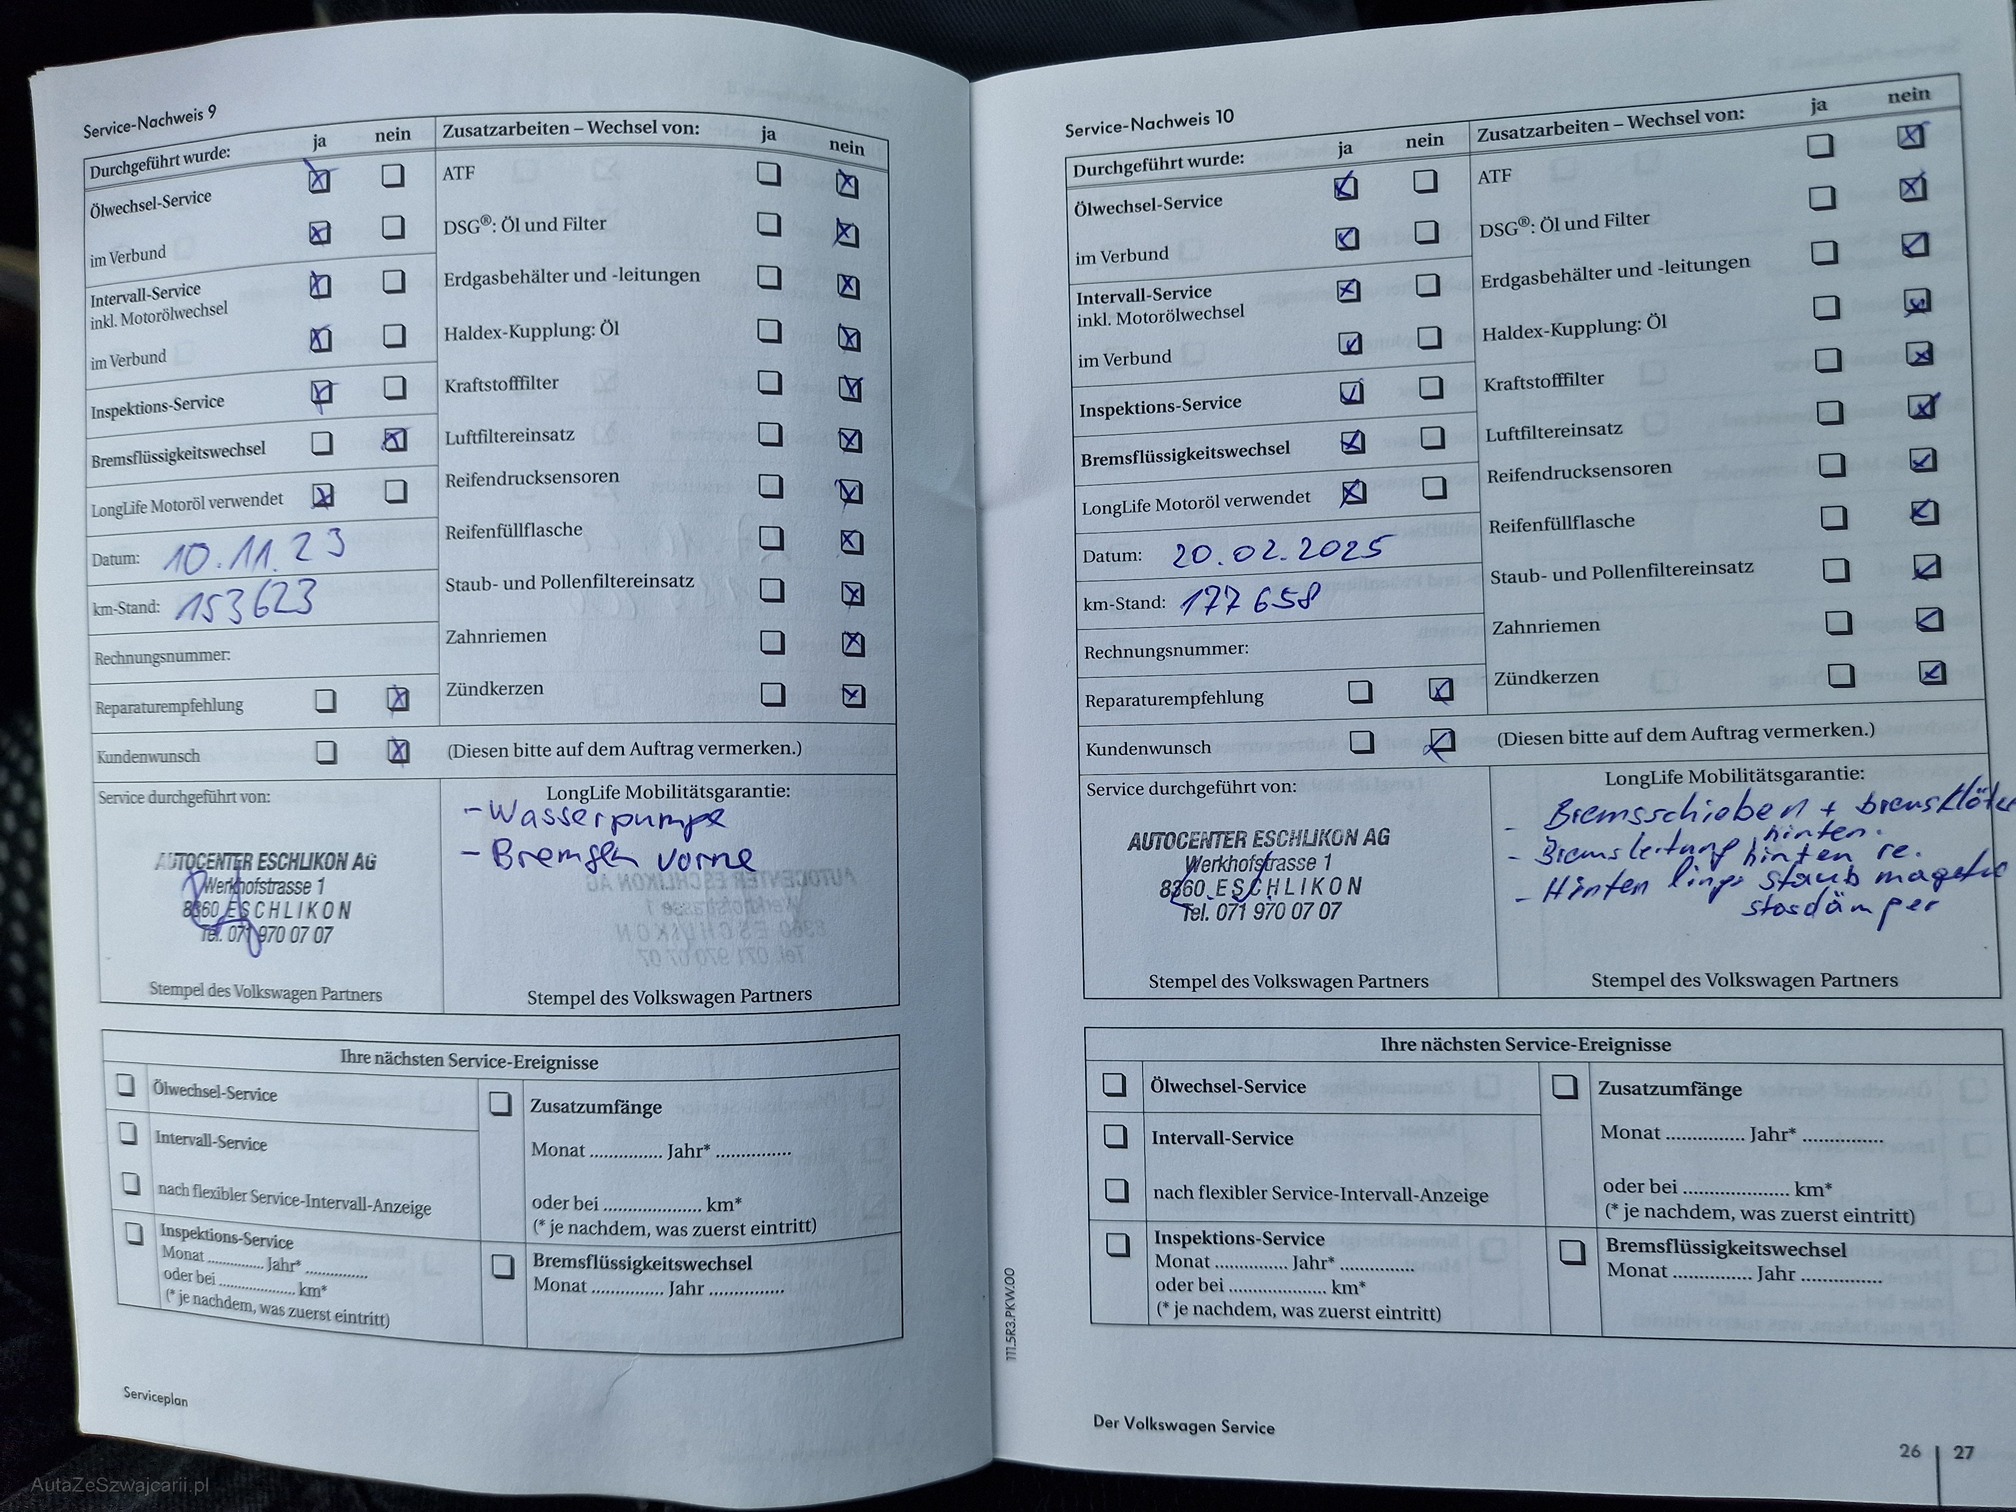 Service-Nachweis 9
Durchgeführt wurde: ja nein
Ölwechsel-Service
im Verbund
Intervall-Service
inkl. Motorölwechsel
im Verbund
Inspektions-Service
Bremsflüssigkeitswechsel
LongLife Motoröl verwendet
Datum: 10.11.23
km-Stand: 153623
Rechnungsnummer:
Reparaturempfehlung
Kundenwunsch
Zusatzarbeiten – Wechsel von: ja nein
ATF
DSG®: Öl und Filter
Erdgasbehälter und -leitungen
Haldex-Kupplung: Öl
Kraftstofffilter
Luftfiltereinsatz
Reifendrucksensoren
Reifenfüllflasche
Staub- und Pollenfiltereinsatz
Zahnriemen
Zündkerzen
(Diesen bitte auf dem Auftrag vermerken.)
Service durchgeführt von:
AUTOCENTER ESCHLIKON AG
Werkhofstrasse 1
8360 ESCHLIKON
Tel. 071 970 07 07
Stempel des Volkswagen Partners
LongLife Mobilitätsgarantie:
- Wasserpumpe
- Bremsen vorne
Stempel des Volkswagen Partners
Ihre nächsten Service-Ereignisse
Ölwechsel-Service
Intervall-Service
nach flexibler Service-Intervall-Anzeige
Inspektions-Service
Monat .............. Jahr* ...............
oder bei .................... km*
(* je nachdem, was zuerst eintritt)
Zusatzumfänge
Monat .............. Jahr* ...............
oder bei .................... km*
(* je nachdem, was zuerst eintritt)
Bremsflüssigkeitswechsel
Monat .............. Jahr ...............
Serviceplan
Service-Nachweis 10
Durchgeführt wurde: ja nein
Ölwechsel-Service
im Verbund
Intervall-Service
inkl. Motorölwechsel
im Verbund
Inspektions-Service
Bremsflüssigkeitswechsel
LongLife Motoröl verwendet
Datum: 20.02.2025
km-Stand: 177658
Rechnungsnummer:
Reparaturempfehlung
Kundenwunsch
Zusatzarbeiten – Wechsel von: ja nein
ATF
DSG®: Öl und Filter
Erdgasbehälter und -leitungen
Haldex-Kupplung: Öl
Kraftstofffilter
Luftfiltereinsatz
Reifendrucksensoren
Reifenfüllflasche
Staub- und Pollenfiltereinsatz
Zahnriemen
Zündkerzen
(Diesen bitte auf dem Auftrag vermerken.)
Service durchgeführt von:
AUTOCENTER ESCHLIKON AG
Werkhofstrasse 1
8360 ESCHLIKON
Tel. 071 970 07 07
Stempel des Volkswagen Partners
LongLife Mobilitätsgarantie:
- Bremsschieben + bremsklötze
hinten.
- Bremsleitung hinten re.
- Hinten lings staub
stosdämper
Stempel des Volkswagen Partners
Ihre nächsten Service-Ereignisse
Ölwechsel-Service
Intervall-Service
nach flexibler Service-Intervall-Anzeige
Inspektions-Service
Monat .............. Jahr* ...............
oder bei .................... km*
(* je nachdem, was zuerst eintritt)
Zusatzumfänge
Monat .............. Jahr* ...............
oder bei .................... km*
(* je nachdem, was zuerst eintritt)
Bremsflüssigkeitswechsel
Monat .............. Jahr ...............
111.5R3.PKW.00
Der Volkswagen Service
26 | 27
AutaZeSzwajcarii.pl